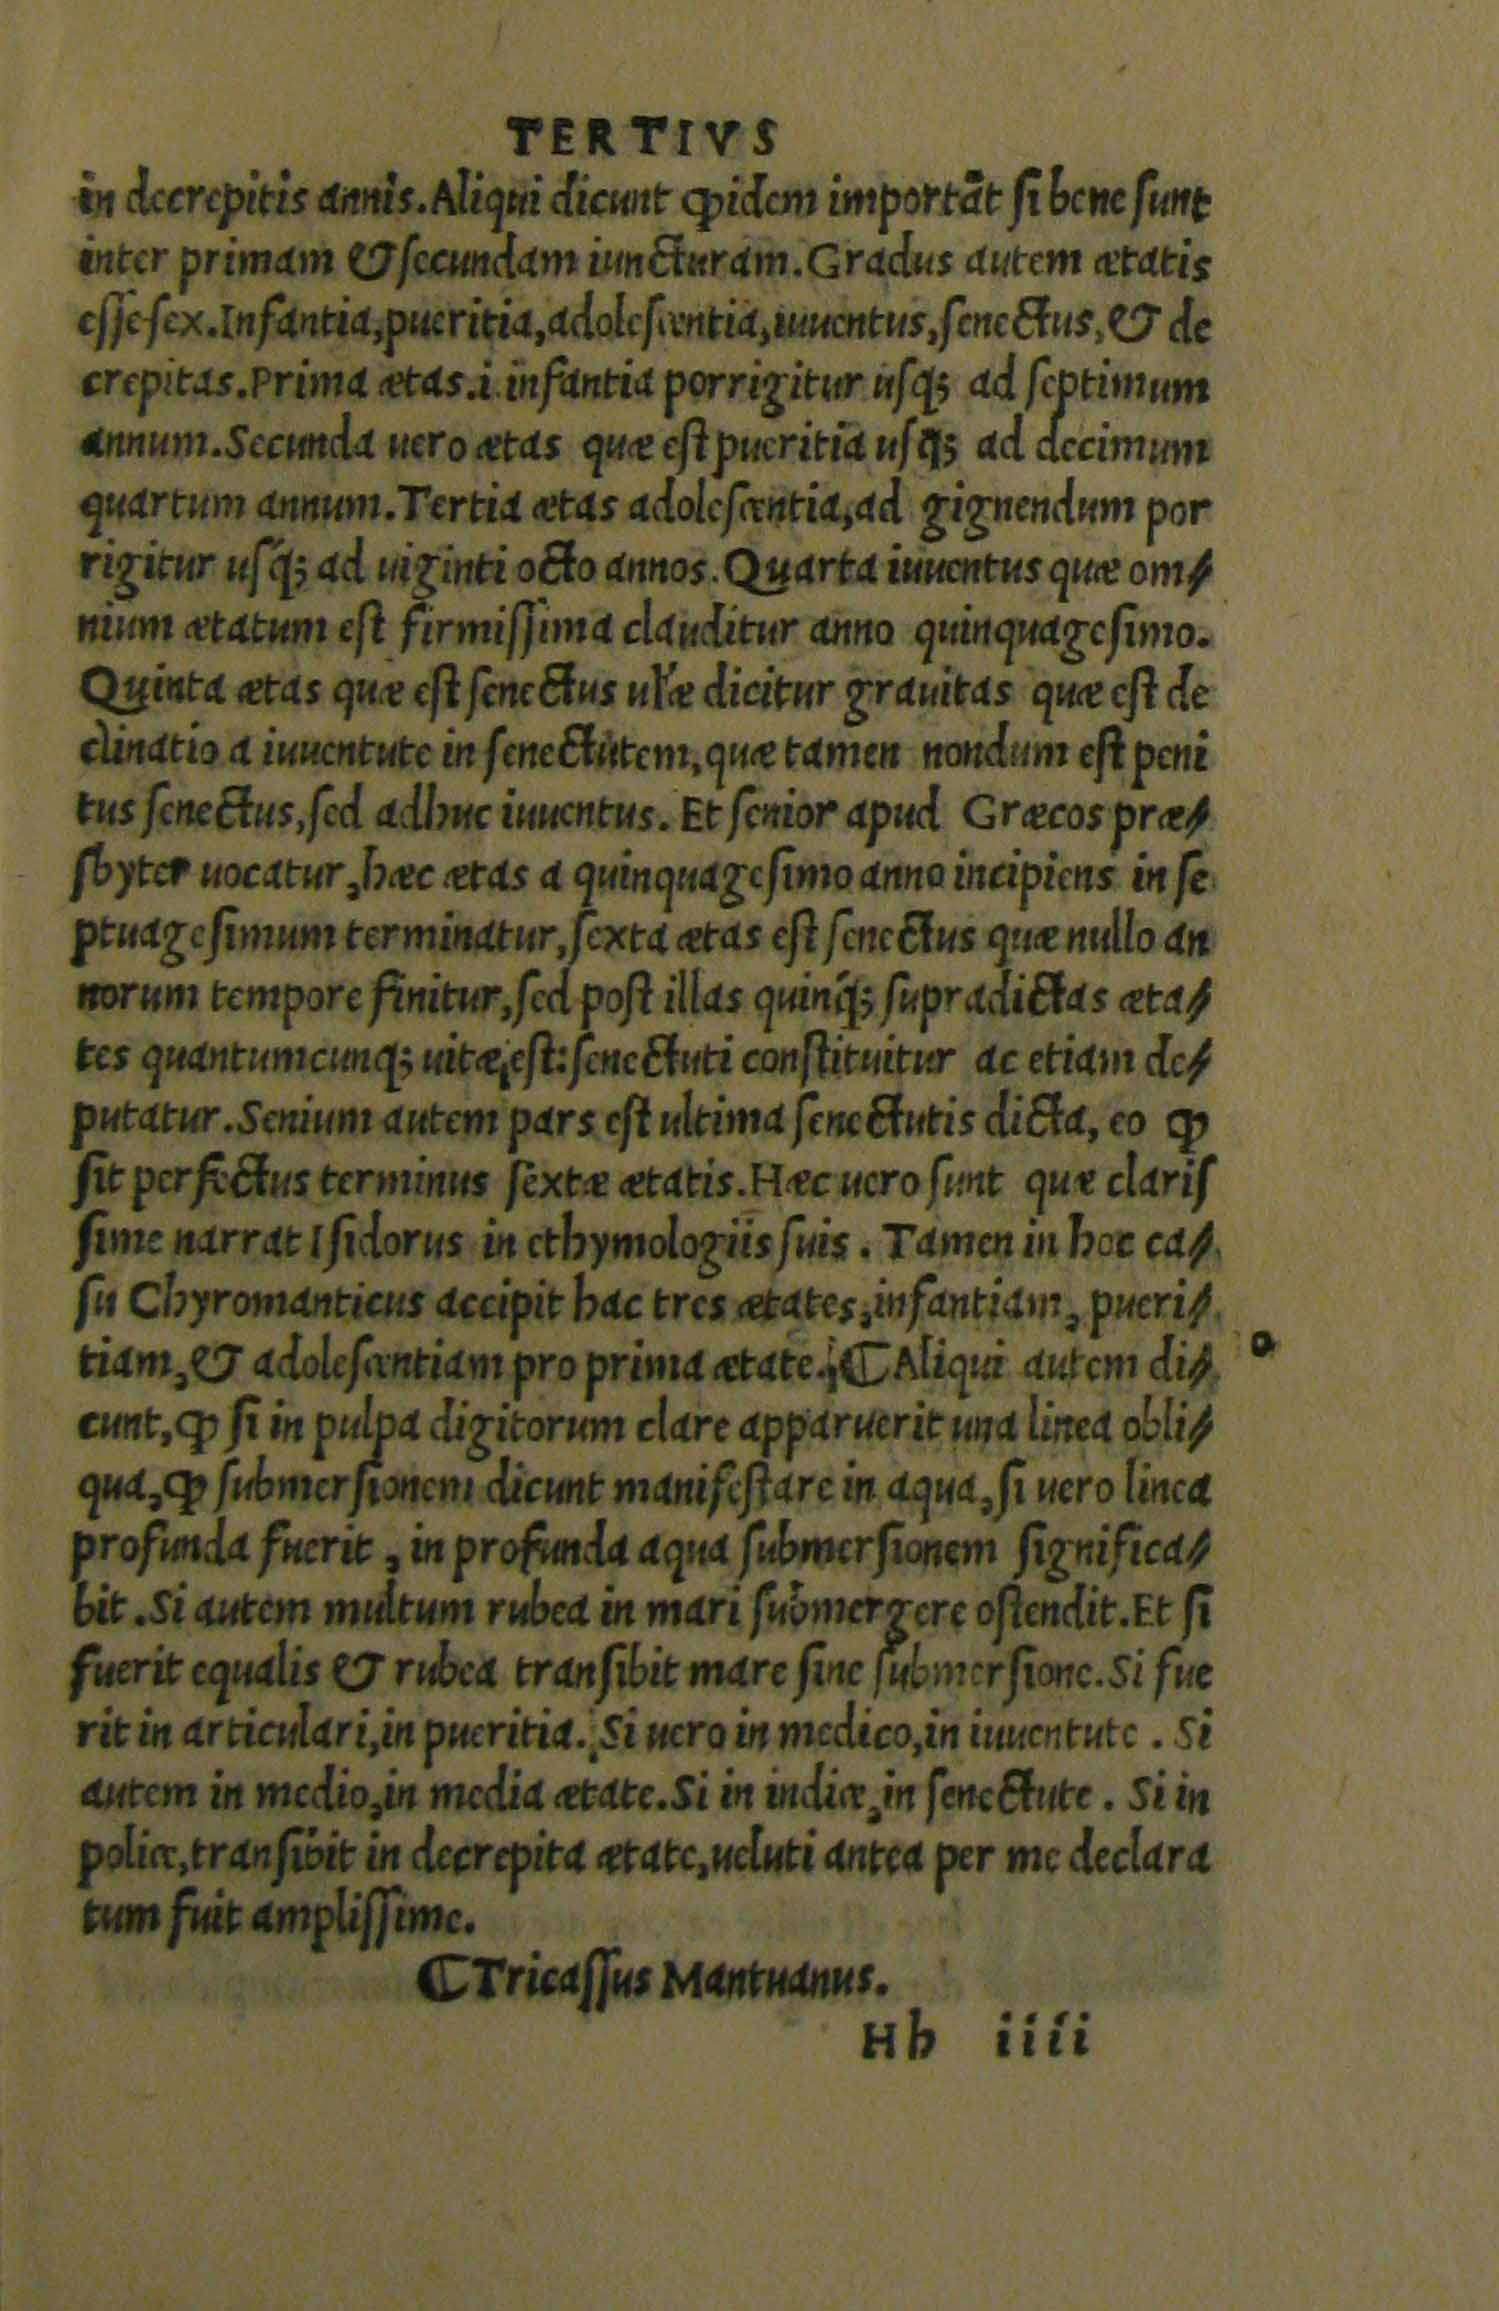 TERTIVS
in decrepitis annis. Aliqui dicunt ꝙ idem importāt ſi bene ſunt
inter primam & ſecundam iuncturam. Gradus autem ætatis
eſſe ſex. Infantia, pueritia, adoleſcentia, iuuentus, ſenectus, & de
crepitas. Prima ætas .i. infantia porrigitur uſq; ad ſeptimum
annum. Secunda uero ætas quæ eſt pueritia uſq; ad decimum
quartum annum. Tertia ætas adoleſcentia, ad gignendum por
rigitur uſq; ad uiginti octo annos. Quarta iuuentus quæ om⸗
nium ætatum eſt firmiſſima clauditur anno quinquageſimo.
Quinta ætas quæ eſt ſenectus dicitur grauitas quæ eſt de
clinatio a iuuentute in ſenectutem, quæ tamen nondum eſt peni
tus ſenectus, ſed adhuc iuuentus. Et ſenior apud Græcos præ⸗
ſbyter uocatur, hæc ætas a quinquageſimo anno incipiens in ſe
ptuageſimum terminatur, ſexta ætas eſt ſenectus quæ nullo an
norum tempore finitur, ſed poſt illas quinq; ſupradictas æta⸗
tes quantumcunq; uitæ eſt: ſenectuti conſtituitur ac etiam de⸗
putatur. Senium autem pars eſt ultima ſenectutis dicta, eo ꝙ
ſit perfectus terminus ſextæ ætatis. Hæc uero ſunt quæ clariſ
ſime narrat Iſidorus in ethymologiis ſuis. Tamen in hoc ca⸗
ſu Chyromanticus accipit hac tres ætates, infantiam, pueri⸗
tiam, & adoleſcentiam pro prima ætate. ¶ Aliqui autem di⸗
cunt, ꝙ ſi in pulpa digitorum clare apparuerit una linea obli⸗
qua, ꝙ ſubmerſionem dicunt manifeſtare in aqua, ſi uero linea
profunda fuerit, in profunda aqua ſubmerſionem ſignifica⸗
bit. Si autem multum rubea in mari ſubmergere oſtendit. Et ſi
fuerit equalis & rubea tranſibit mare ſine ſubmerſione. Si fue
rit in articulari, in pueritia. Si uero in medico, in iuuentute. Si
autem in medio, in media ætate. Si in indice, in ſenectute. Si in
police, tranſibit in decrepita ætate, ueluti antea per me declara
tum fuit ampliſſime.
¶ Tricaſſus Mantuanus.
Hh iiii